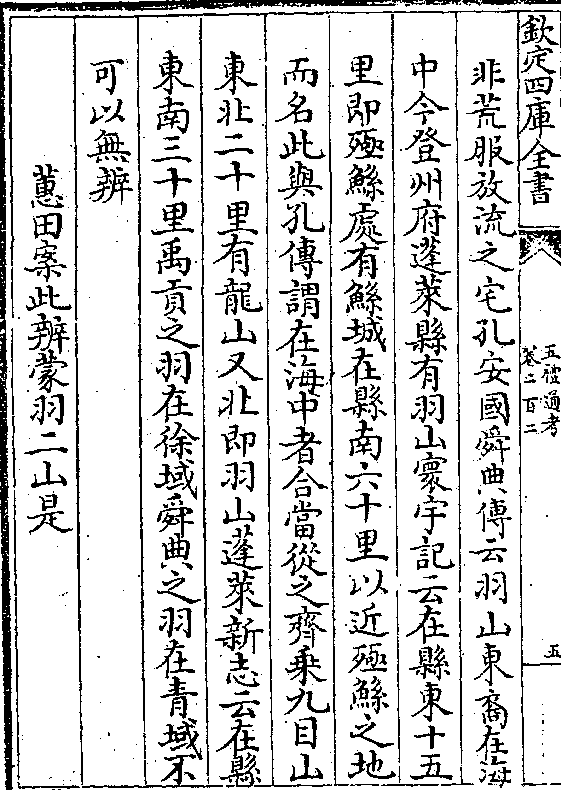 欽定四庫全書
五禮通考
卷二百二
五
非荒服放流之宅孔安國舜典傳云羽山東裔在海
中今登州府蓬萊縣有羽山寰宇記云在縣東十五
里即殛鯀處有鯀城在縣南六十里以近殛鯀之地
而名此與孔傳謂在海中者合當從之齊乗九目山
東北二十里有龍山又北即羽山蓬萊新志云在縣
東南三十里禹貢之羽在徐域舜典之羽在青域不
可以無辨
蕙田案此辨蒙羽二山是